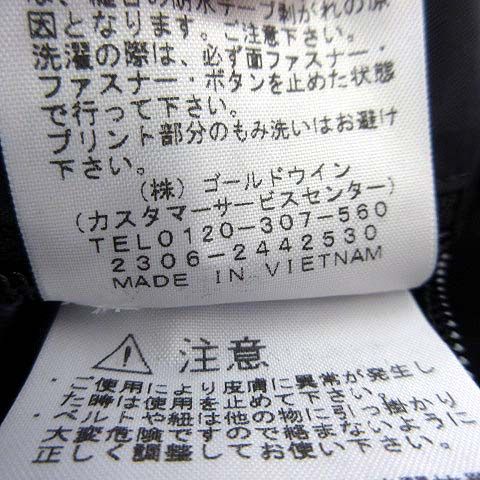 は、縫合の防水テープ剥がれの原
因となります。ご注意下さい。
洗濯の際は、必ず面ファスナー・
ファスナー・ボタンを止めた状態
で行って下さい。
プリント部分のもみ洗いはお避け
下さい。
(株) ゴールドウイン
(カスタマーサービスセンター)
TEL0120-307-560
2306-2442530
MADE IN VIETNAM
注意
・ご使用により皮膚に異常が発生し
た時は使用を止めて下さい。
・ベルトや紐は他の物に引っ掛かり
大変危険ですので絡まないように
正しく調整してお使い下さい。